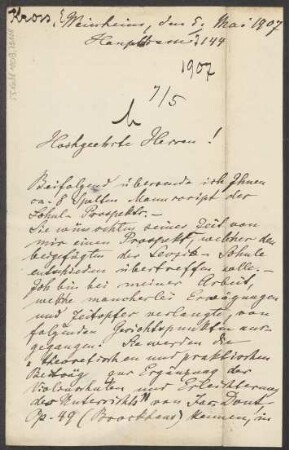 Kross, E. Weinheim, den 5. Mai 1907
Hauptstr. 144
1907
7/5
Hochgeehrte Herren!
Beifolgend übersende ich Ihnen
ca. 8 Spalten Manuscript der
Schul-Prospekte.
Sie wünschten seiner Zeit von
mir einen Prospekt, welcher den
beigefügten der Leipzig. Schule
entschieden übertreffen solle. –
Ich bin bei meiner Arbeit,
welche mancherlei Erwägungen
und Zeitopfer verlangte, von
folgenden Gesichtspunkten aus-
gegangen. Sie werden die
"theoretischen und praktischen
Beiträge zur Ergänzung der
Violinschulen und Erleichterung
des Unterrichts" von Jac. Dont
Op. 49 (Brockhaus) kennen, in